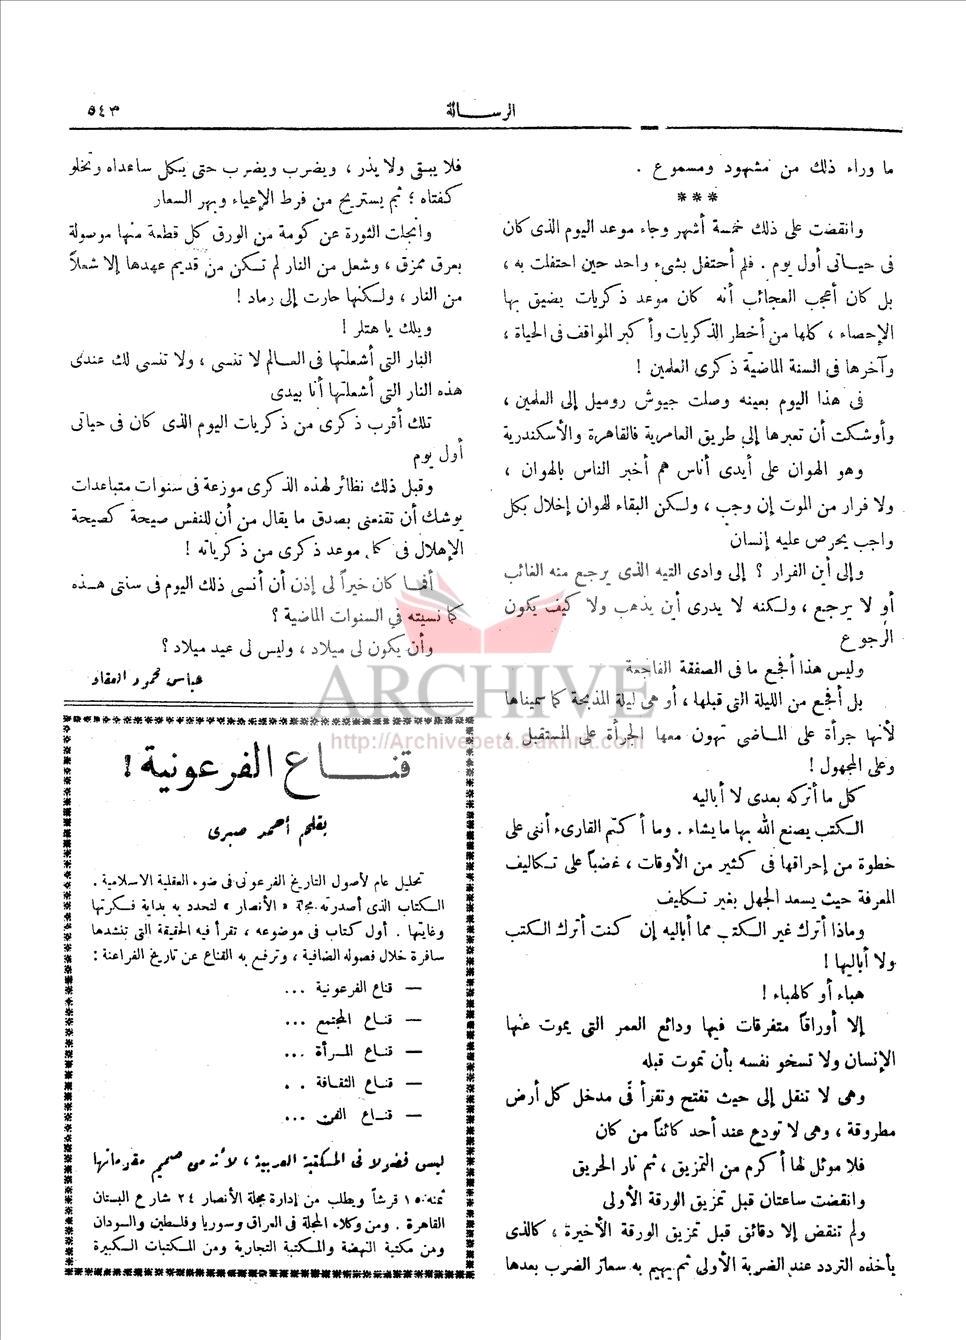 ٥٤٣
الرسالة
ما وراء ذلك من مشهود ومسموع .
***
وانقضت على ذلك خمسة أشهر وجاء موعد اليوم الذى كان
فى حياتى أول يوم . فلم أحتفل بشىء واحد حين احتفلت به ،
بل كان أعجب العجائب أنه كان موعد ذكريات يضيق بها
الإحصاء ، كلها من أخطر الذكريات وأكبر المواقف فى الحياة ،
وآخرها فى السنة الماضية ذكرى العلمين !
فى هذا اليوم بعينه وصلت جيوش روميل إلى العلمين ،
وأوشكت أن تعبرها إلى طريق العامرية فالقاهرة والأسكندرية
وهو الهوان على أيدى أناس هم أخبر الناس بالهوان ،
ولا فرار من الموت إن وجب ، ولكن البقاء للهوان إخلال بكل
واجب يحرص عليه إنسان
وإلى أين الفرار ؟ إلى وادى التيه الذى يرجع منه الغائب
أو لا يرجع ، ولكنه لا يدرى أين يذهب ولا كيف يكون
الرجوع
وليس هذا أفجع ما فى الصفقة الفاجعة
بل أفجع من الليلة التى قبلها ، أو هى ليلة المذبحة كما سميناها
لأنها جرأة على الماضى تهون معها الجرأة على المستقبل ،
وعلى المجهول !
كل ما أتركه بعدى لا أباليه
الكتب يصنع الله بها ما يشاء . وما أكتم القارىء أننى على
خطوة من إحراقها فى كثير من الأوقات ، غضباً على تكاليف
المعرفة حيث يسعد الجهل بغير تكليف
وماذا أترك غير الكتب مما أباليه إن كنت أترك الكتب
ولا أباليها !
هباء أو كالهباء !
إلا أوراقاً متفرقات فيها ودائع العمر التى يموت عنها
الإنسان ولا تسخو نفسه بأن تموت قبله
وهى لا تنقل إلى حيث تفتح وتقرأ فى مدخل كل أرض
مطروقة ، وهى لا تودع عند أحد كائناً من كان
فلا موئل لها أكرم من التمزيق ، ثم نار الحريق
وانقضت ساعتان قبل تمزيق الورقة الأولى
ولم تنقض إلا دقائق قبل تمزيق الورقة الأخيرة ، كالذى
يأخذه التردد عند الضربة الأولى ثم يهيم به سعار الضرب بعدها
فلا يبقى ولا يذر ، ويضرب ويضرب حتى يكل ساعداه وتخلو
كفتاه ؛ ثم يستريح من فرط الإعياء وبهر السعار
وانجلت الثورة عن كومة من الورق كل قطعة منها موصولة
بعرق ممزق ، وشعل من النار لم تكن من قديم عهدها إلا شعلاً
من النار ، ولكنها حارت إلى رماد !
ويلك يا هتلر !
النار التى أشعلتها فى العالم لا تنسى ، ولا تنسى لك عندى
هذه النار التى أشعلتها أنا بيدى
تلك أقرب ذكرى من ذكريات اليوم الذى كان فى حياتى
أول يوم
وقبل ذلك نظائر لهذه الذكرى موزعة فى سنوات متباعدات
يوشك أن تقنعنى بصدق ما يقال من أن للنفس صيحة كصيحة
الإهلال فى كل موعد ذكرى من ذكرياته !
أفما كان خيراً لى إذن أن أنسى ذلك اليوم فى سنتى هذه
كما نسيته في السنوات الماضية ؟
وأن يكون لى ميلاد ، وليس لى عيد ميلاد ؟
عباس محمود العقاد
قناع الفرعونية !
بقلم أحمد صبرى
تحليل عام لأصول التاريخ الفرعونى فى ضوء العقلية الاسلامية .
الكتاب الذى أصدرته مجلة « الأنصار » لتحدد به بداية فكرتها
وغايتها . أول كتاب فى موضوعه ، تقرأ فيه الحقيقة التى تنشدها
سافرة خلال فصوله الضافية ، وترفع به القناع عن تاريخ الفراعنة :
— قناع الفرعونية ...
— قناع المجتمع ...
— قناع المرأة ...
— قناع الثقافة . .
— قناع الفن ...
ليس فضولا فى المكتبة العربية ، لأنه من صميم مقدماتها
ثمنه ١٥ قرشاً ويطلب من إدارة مجلة الأنصار ٢٤ شارع البستان
القاهرة . ومن وكلاء المجلة فى العراق وسوريا وفلسطين والسودان
ومن مكتبة النهضة والمكتبة التجارية ومن المكتبات الكبيرة
ARCHIVE
http://Archivebeta.Sakhrit.com